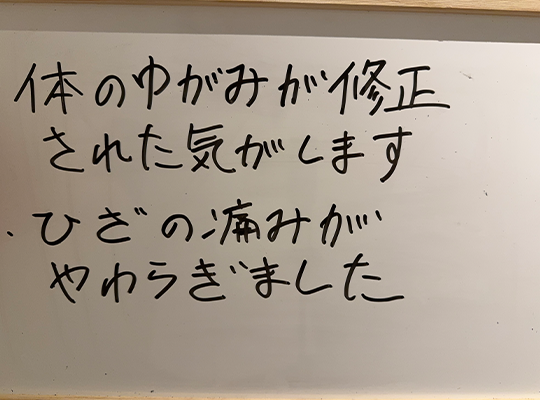 体のゆがみが修正
された気がします
・ひざの痛みが
やわらぎました